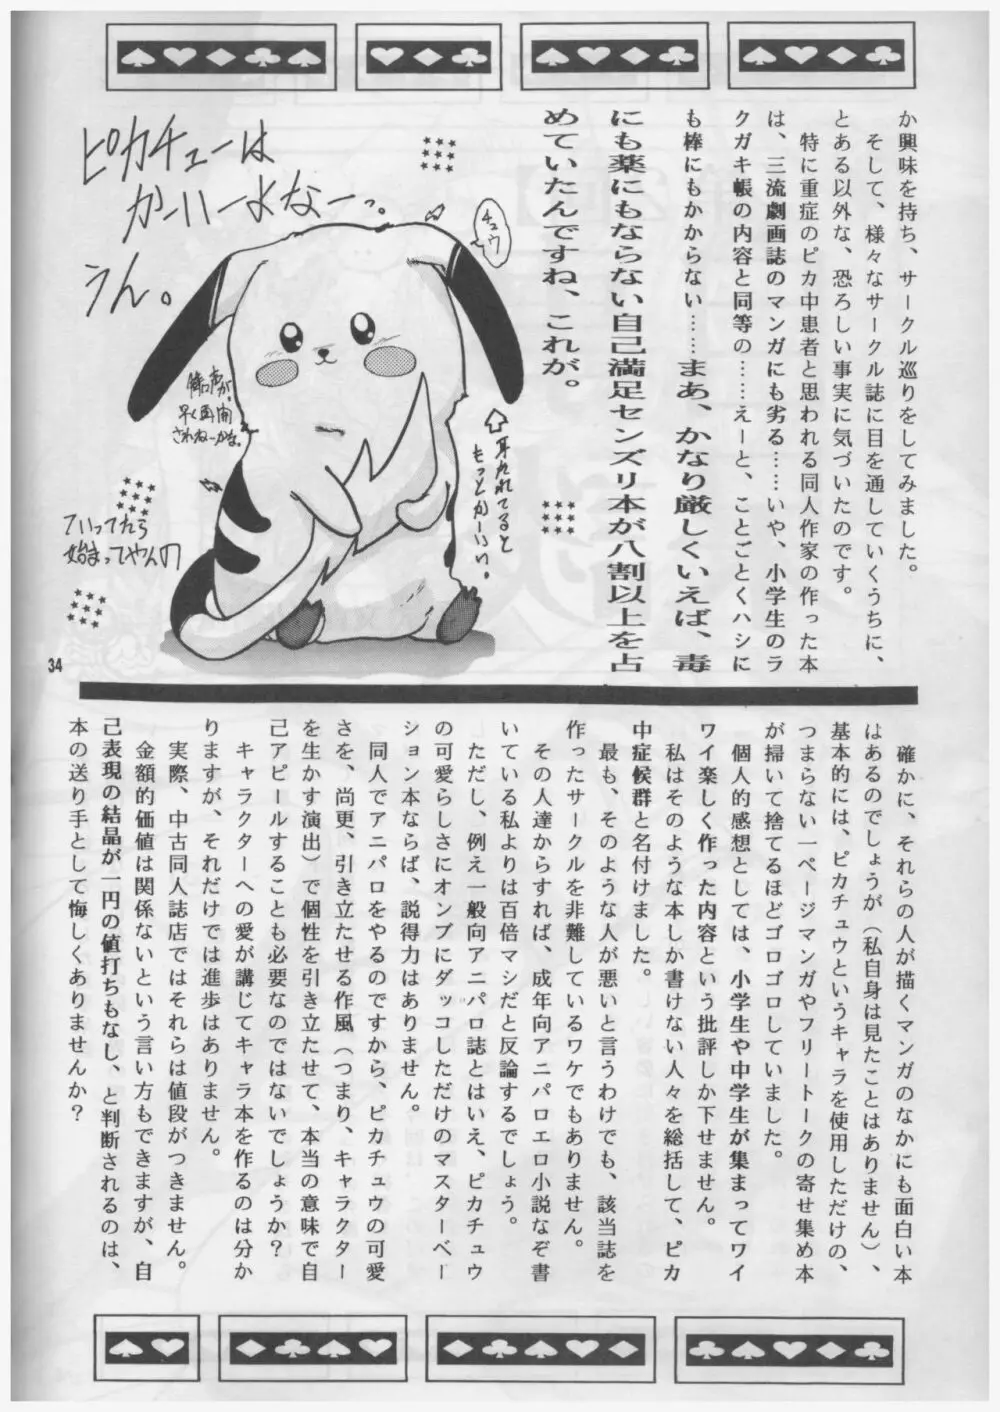 か興味を持ち、サークル巡りをしてみました。
そして、様々なサークル誌に目を通していくうちに、
とある以外な、恐ろしい事実に気づいたのです。
特に重症のピカ中患者と思われる同人作家の作った本
は、三流劇画誌のマンガにも劣る……いや、小学生のラ
クガキ帳の内容と同等の……えーと、ことごとくハシに
も棒にもかからない……まあ、かなり厳しくいえば、毒
にも薬にもならない自己満足センズリ本が八割以上を占
めていたんですね、これが。
ピカチューは
かーいーよなーっ。
うん。
チュウ
⇧耳たれてると
もっとかーいい。
早く再開
されねーかな。
ていってたら
始まってやんの
34
確かに、それらの人が描くマンガのなかにも面白い本
はあるのでしょうが（私自身は見たことはありません）、
基本的には、ピカチュウというキャラを使用しただけの、
つまらない一ページマンガやフリートークの寄せ集め本
が掃いて捨てるほどゴロゴロしていました。
個人的感想としては、小学生や中学生が集まってワイ
ワイ楽しく作った内容という批評しか下せません。
私はそのような本しか書けない人々を総括して、ピカ
中症候群と名付けました。
最も、そのような人が悪いと言うわけでも、該当誌を
作ったサークルを非難しているワケでもありません。
その人達からすれば、成年向アニパロエロ小説なぞ書
いている私よりは百倍マシだと反論するでしょう。
ただし、例え一般向アニパロ誌とはいえ、ピカチュウ
の可愛らしさにオンブにダッコしただけのマスターベー
ション本ならば、説得力はありません。
同人でアニパロをやるのですから、ピカチュウの可愛
さを、尚更、引き立たせる作風（つまり、キャラクター
を生かす演出）で個性を引き立たせて、本当の意味で自
己アピールすることも必要なのではないでしょうか？
キャラクターへの愛が講じてキャラ本を作るのは分か
りますが、それだけでは進歩はありません。
実際、中古同人誌店ではそれらは値段がつきません。
金額的価値は関係ないという言い方もできますが、自
己表現の結晶が一円の値打ちもなし、と判断されるのは、
本の送り手として悔しくありませんか？